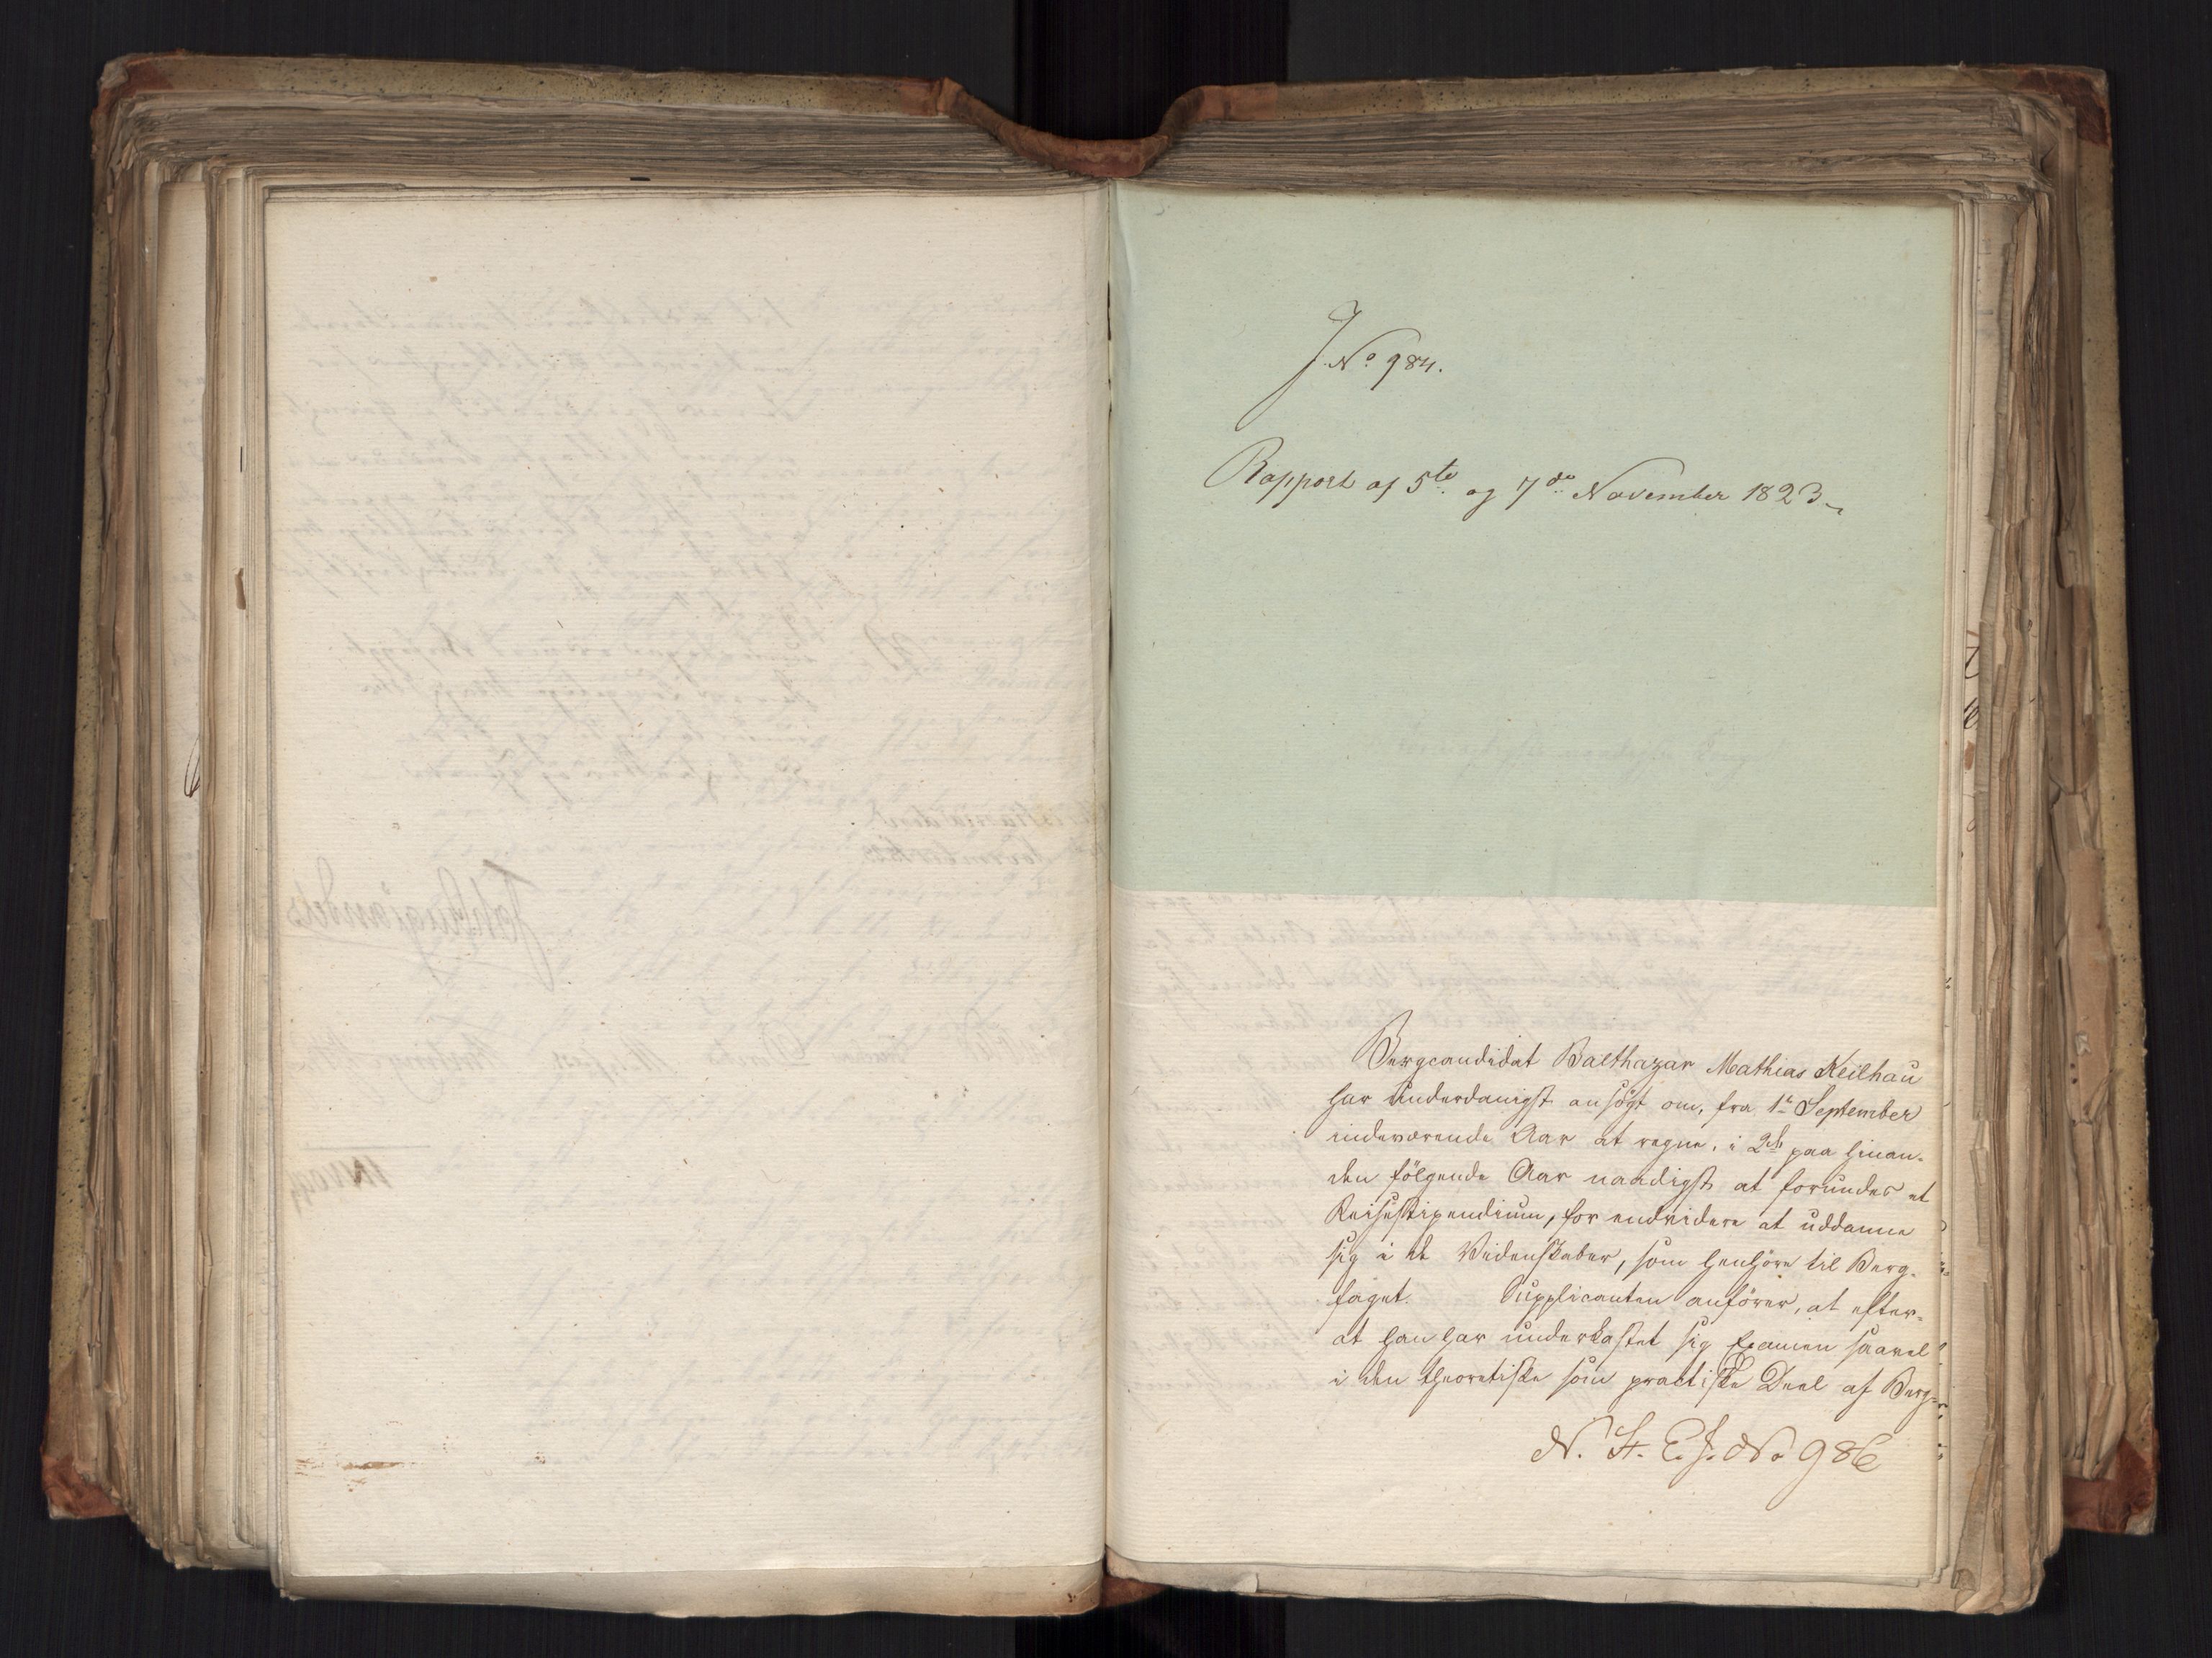 J. No 984.
Rapport af 5te og 7de November 1823
Bergcandidat Balthazar Mathias Keilhau
har underdanigst ansögt om, fra 1te September
indeværende Aar at regne, i 2de paa hinan-
den følgende Aar naadigst at forundes et
Reisestipendium, for endvidere at uddanne
sig i de Videnskaber, som henhöre til Berg-
faget. Supplicanten anförer, at efter-
at han har underkastet sig Examen saavel
i den theoretiske som practiske Deel af Berg-
N. St. E. J. No 986